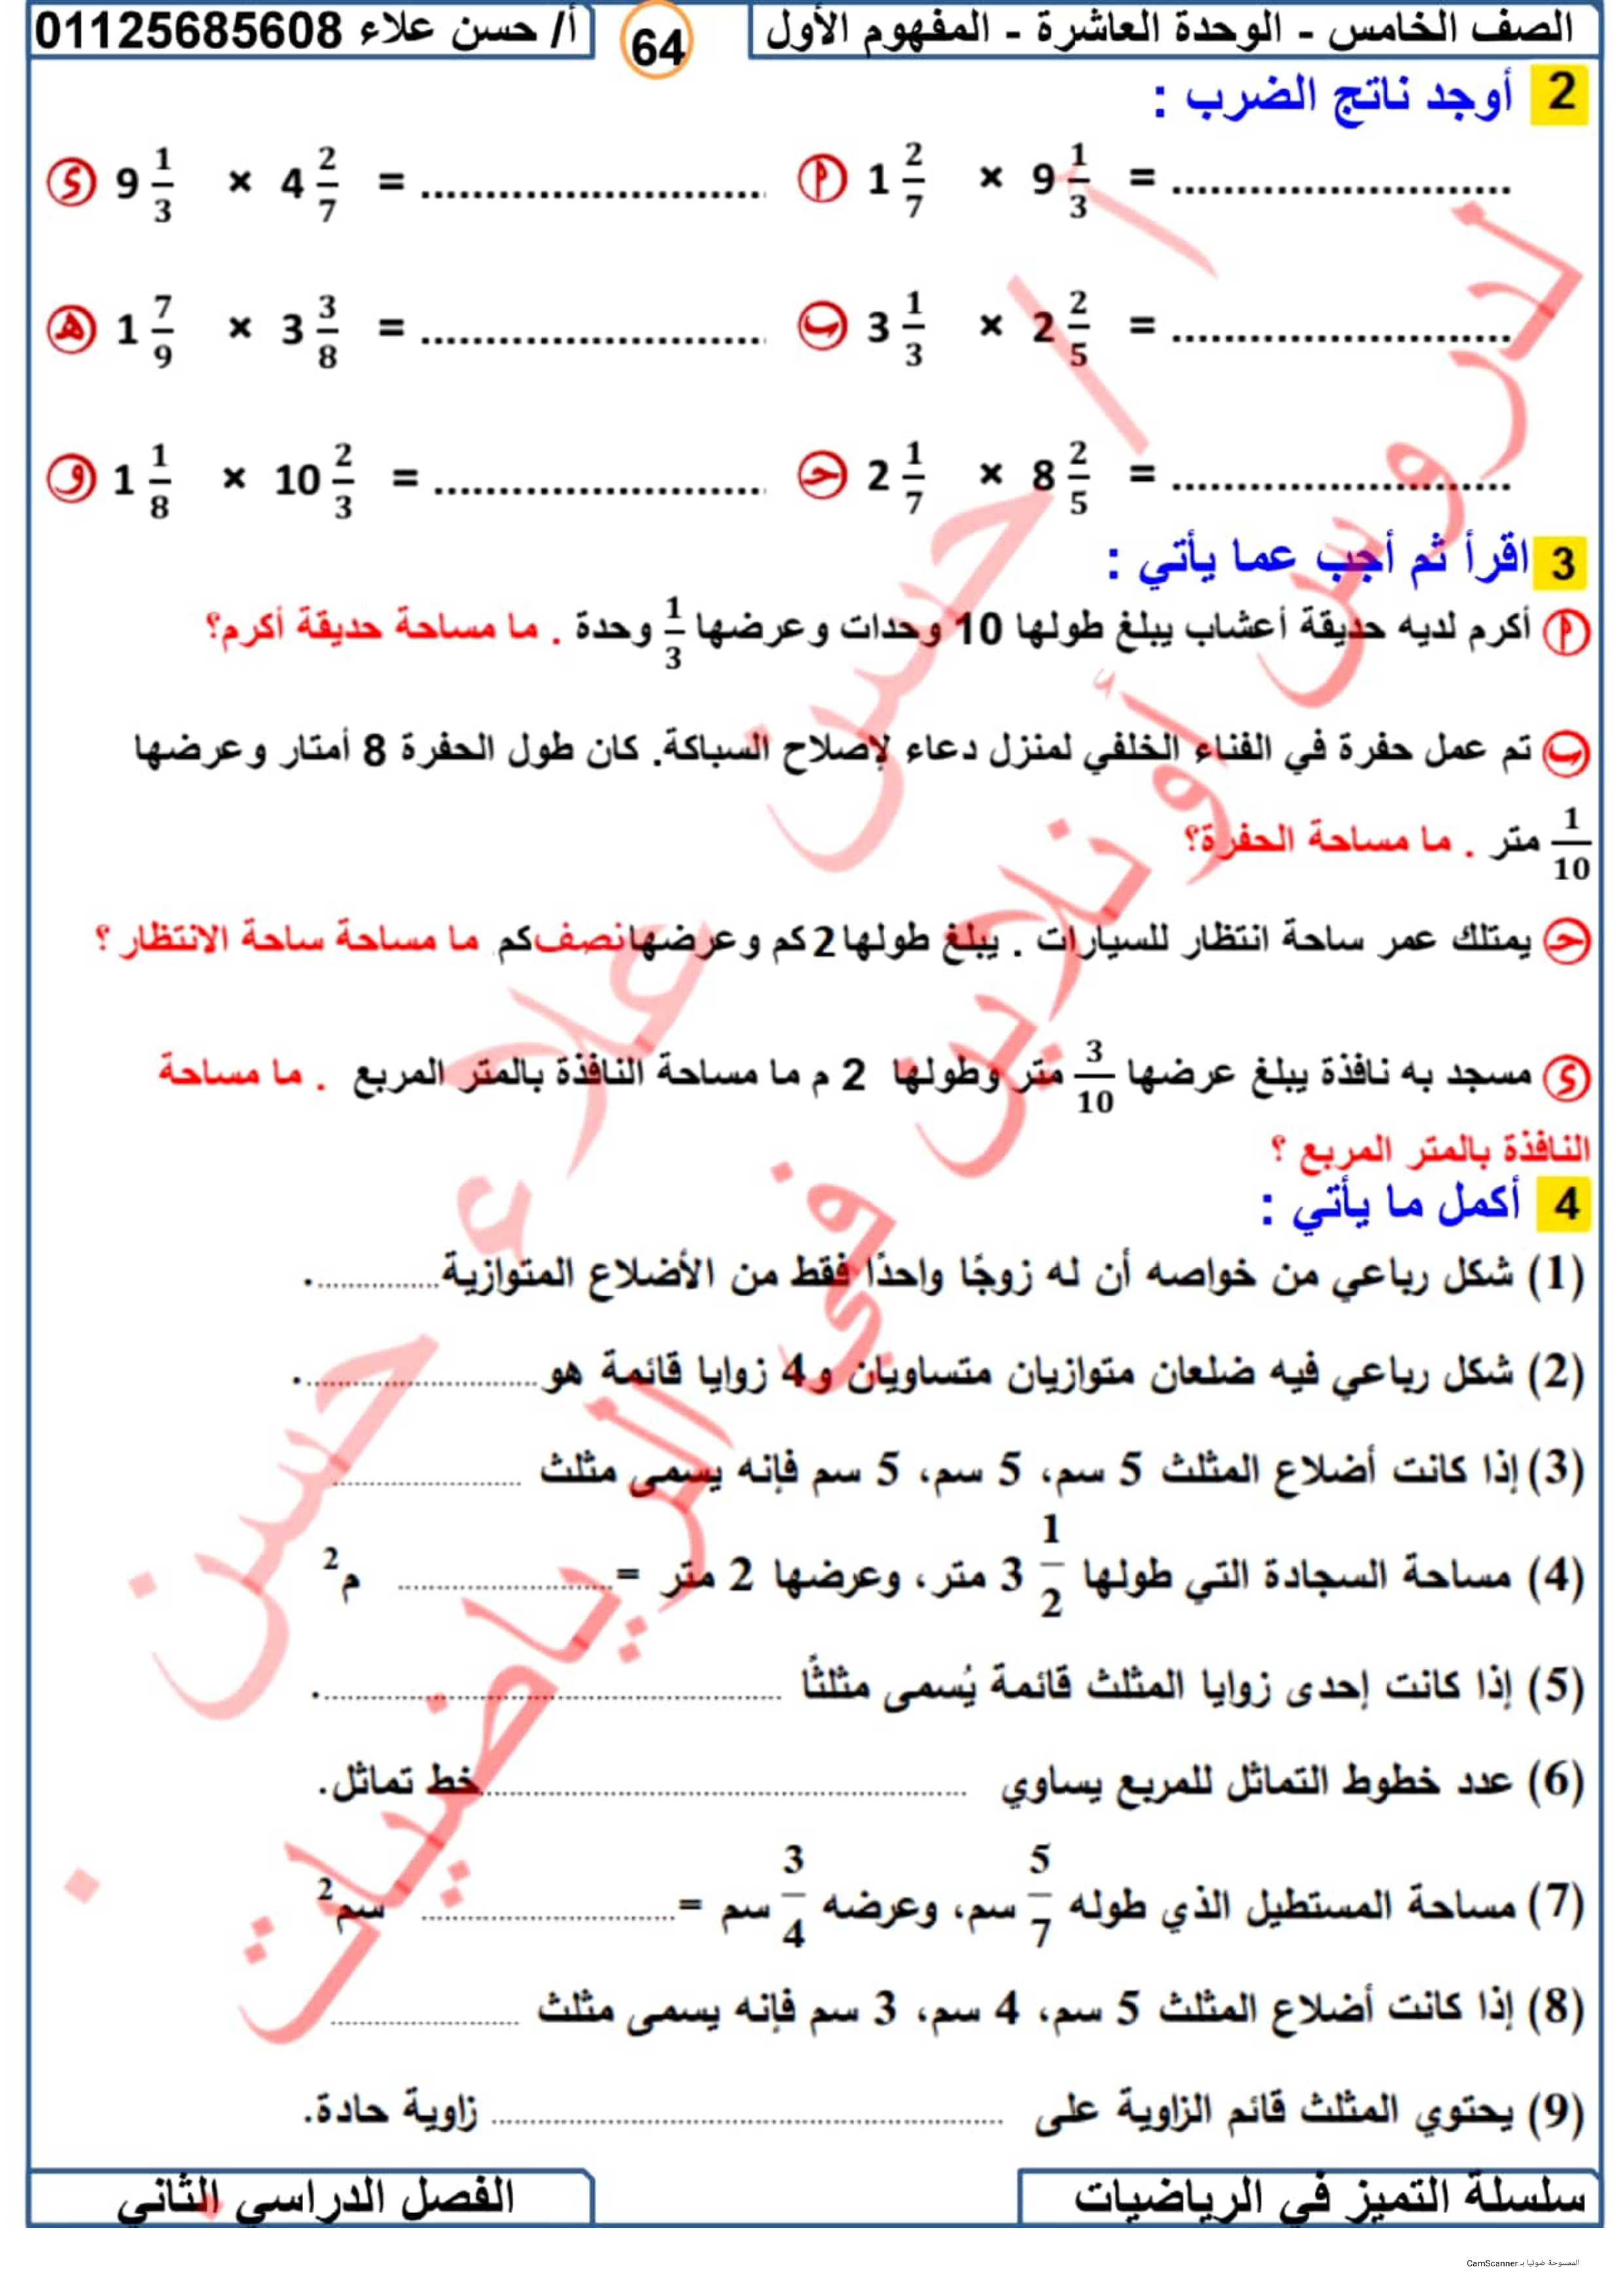 الصف الخامس - الوحدة العاشرة - المفهوم الأول 64 أ/ حسن علاء 01125685608
2 أوجد ناتج الضرب :
أ 1 2/7 × 9 1/3 = .......................... د 9 1/3 × 4 2/7 = ..........................
ب 3 1/3 × 2 2/5 = .......................... هـ 1 7/9 × 3 3/8 = ..........................
جـ 2 1/7 × 8 2/5 = .......................... و 1 1/8 × 10 2/3 = ..........................
3 اقرأ ثم أجب عما يأتي :
أ أكرم لديه حديقة أعشاب يبلغ طولها 10 وحدات وعرضها 1/3 وحدة . ما مساحة حديقة أكرم؟
ب تم عمل حفرة في الفناء الخلفي لمنزل دعاء لإصلاح السباكة. كان طول الحفرة 8 أمتار وعرضها
1/10 متر . ما مساحة الحفرة؟
جـ يمتلك عمر ساحة انتظار للسيارات . يبلغ طولها 2 كم وعرضها نصف كم ما مساحة ساحة الانتظار ؟
د مسجد به نافذة يبلغ عرضها 3/10 متر وطولها 2 م ما مساحة النافذة بالمتر المربع . ما مساحة
النافذة بالمتر المربع ؟
4 أكمل ما يأتي :
(1) شكل رباعي من خواصه أن له زوجًا واحدًا فقط من الأضلاع المتوازية...............
(2) شكل رباعي فيه ضلعان متوازيان متساويان و 4 زوايا قائمة هو.............................
(3) إذا كانت أضلاع المثلث 5 سم، 5 سم، 5 سم فإنه يسمى مثلث ........................
(4) مساحة السجادة التي طولها 3 1/2 متر، وعرضها 2 متر =........................... م2
(5) إذا كانت إحدى زوايا المثلث قائمة يُسمى مثلثًا ..........................................................
(6) عدد خطوط التماثل للمربع يساوي .............................................................خط تماثل.
(7) مساحة المستطيل الذي طوله 5/7 سم، وعرضه 3/4 سم =................................ سم2
(8) إذا كانت أضلاع المثلث 5 سم، 4 سم، 3 سم فإنه يسمى مثلث ........................
(9) يحتوي المثلث قائم الزاوية على ................................................................ زاوية حادة.
سلسلة التميز في الرياضيات الفصل الدراسي الثاني
أ / حسن علاء حسن
دروس أونلاين في الرياضيات
الممسوحة ضوئيا بـ CamScanner